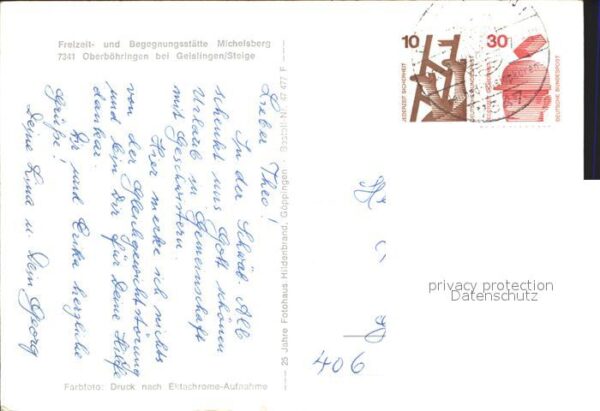 Freizeit- und Begegnungsstätte Michelsberg
7341 Oberböhringen bei Geislingen/Steige
Lieber Theo!
In der Schwäb. Alb
schenkt uns Gott schönen
Urlaub in Gemeinschaft
mit Geschwistern.
Hier merke ich nichts
von der Gleichgewichtstörung
und bin Dir für Deine Hilfe
dankbar.
Dir und Erika herzliche
Grüße!
Deine Lina u Dein Georg
Farbfoto: Druck nach Ektachrome-Aufnahme
25 Jahre Fotohaus Hildenbrand, Göppingen - Bestell-Nr. 42 477 F
10
JEDERZEIT SICHERHEIT
DEUTSCHE BUNDESPOST
30
JEDERZEIT SICHERHEIT
DEUTSCHE BUNDESPOST
privacy protection
Datenschutz
406